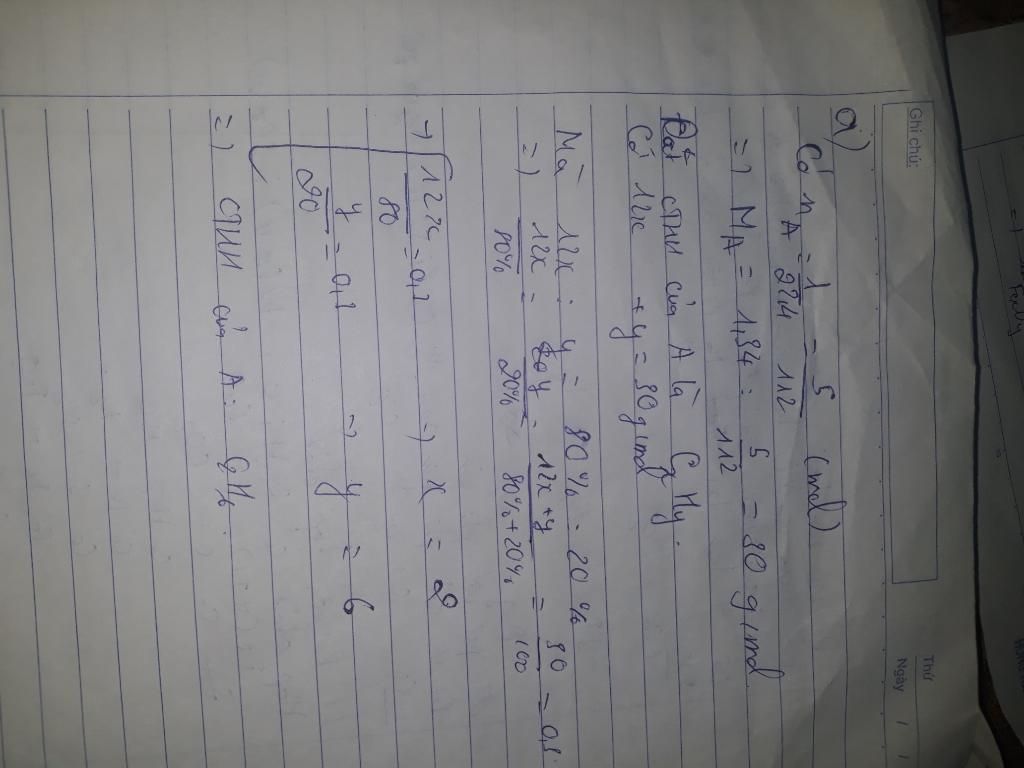 Ghi chú:
Thứ
Ngày / /
a)
Có nA = 1/22,4 = 5/112 (mol)
=) MA = 1,34 : 5/112 = 30 g/mol
Đặt CTHH của A là CxHy.
Có 12x + y = 30 g/mol
Mà 12x : y = 80% : 20%
=) 12x/80% = y/20% = 12x+y/80%+20% = 30/100 = 0,3
→ 12x/80 = 0,3 → x = 2
y/20 = 0,3 → y = 6
=) CTHH của A: C2H6.